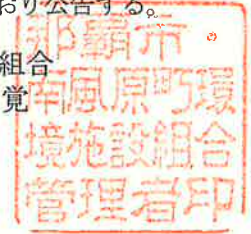 おり公告する。
組合
覚
那覇市
南風原町環
境施設組合
管理者印